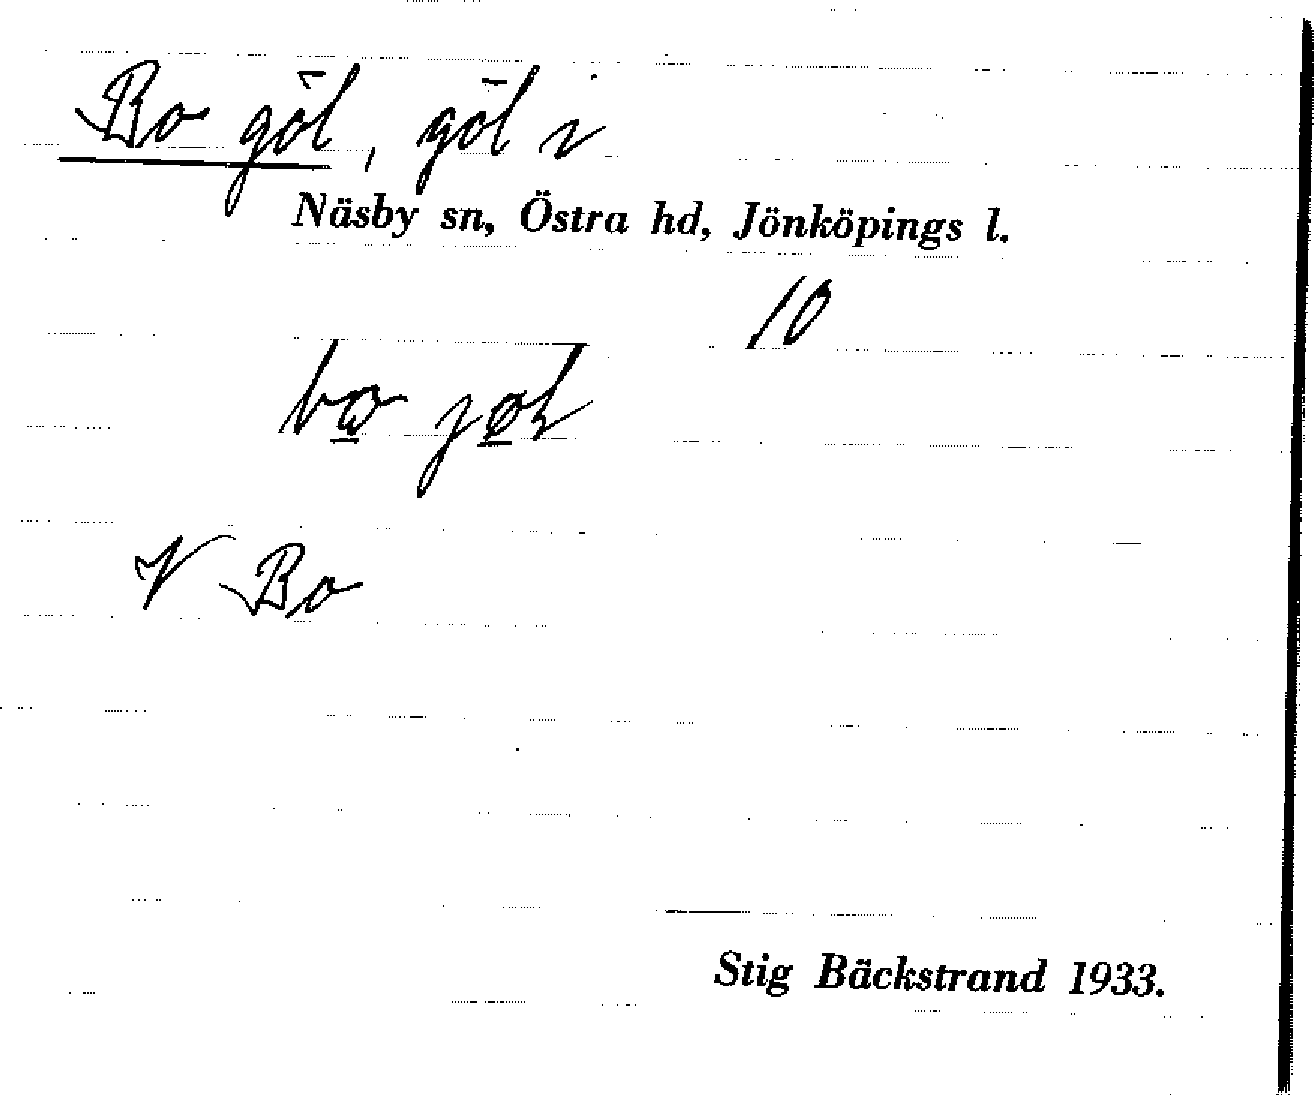 Bo göl, göl i
Näsby sn, Östra hd, Jönköpings l.
10
bo̲ jø̲ɫ
V Bo
Stig Bäckstrand 1933.